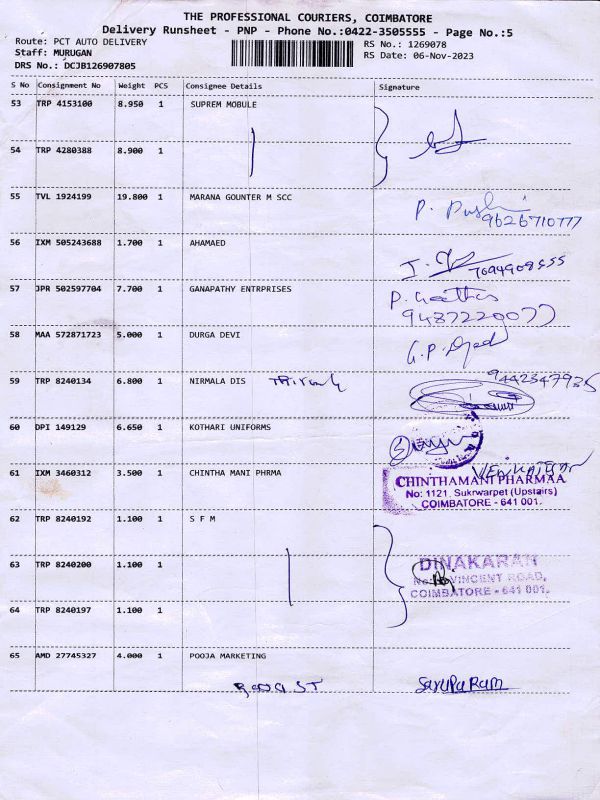 THE PROFESSIONAL COURIERS, COIMBATORE
Delivery Runsheet - PNP - Phone No.:0422-3505555 - Page No.:5
Route: PCT AUTO DELIVERY RS No.: 1269078
Staff: MURUGAN RS Date: 06-Nov-2023
DRS No.: DCJB126907805
S No Consignment No Weight PCS Consignee Details Signature
53 TRP 4153100 8.950 1 SUPREM MOBULE
54 TRP 4280388 8.900 1
55 TVL 1924199 19.800 1 MARANA GOUNTER M SCC
9626710777
56 IXM 505243688 1.700 1 AHAMAED
57 JPR 502597704 7.700 1 GANAPATHY ENTRPRISES
9487220077
58 MAA 572871723 5.000 1 DURGA DEVI
59 TRP 8240134 6.800 1 NIRMALA DIS
9442347935
60 DPI 149129 6.650 1 KOTHARI UNIFORMS
61 IXM 3460312 3.500 1 CHINTHA MANI PHRMA
CHINTHAMANI PHARMAA
No: 1121, Sukrwarpet (Upstairs)
COIMBATORE - 641 001.
62 TRP 8240192 1.100 1 S F M
63 TRP 8240200 1.100 1
DINAKARAN
VINCENT ROAD,
COIMBATORE - 641 001.
64 TRP 8240197 1.100 1
65 AMD 27745327 4.000 1 POOJA MARKETING
SaruPaRam